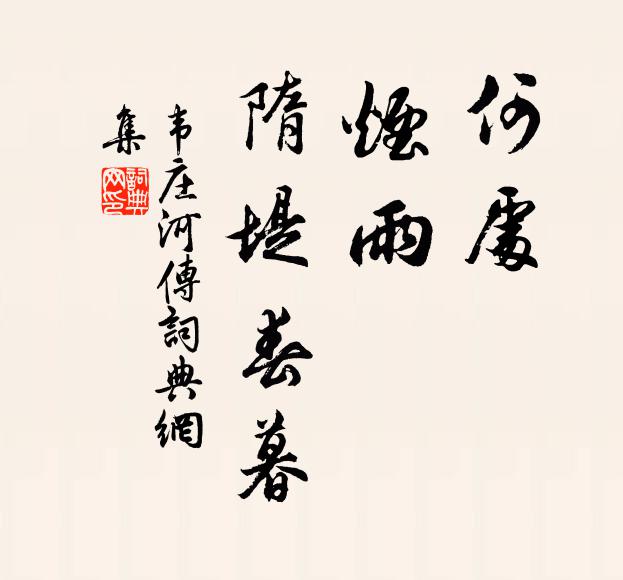 何處
煙雨
隋堤春暮
韦庄河傳詞典網
集
詞典
网印